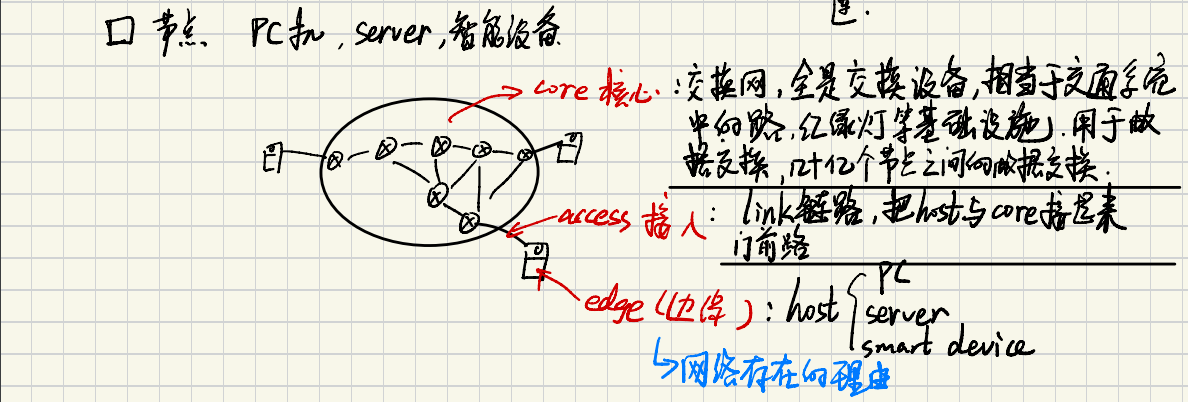 节点 PC机, server, 智能设备
core 核心: 交换网, 全是交换设备, 相当于交通系统
中的路, 红绿灯等基础设施, 用于数
据交换, 几十亿个节点之间的数据交换.
access 接入: link链路, 把host与core接起来
门前路
edge (边缘): host
PC
server
smart device
网络存在的理由